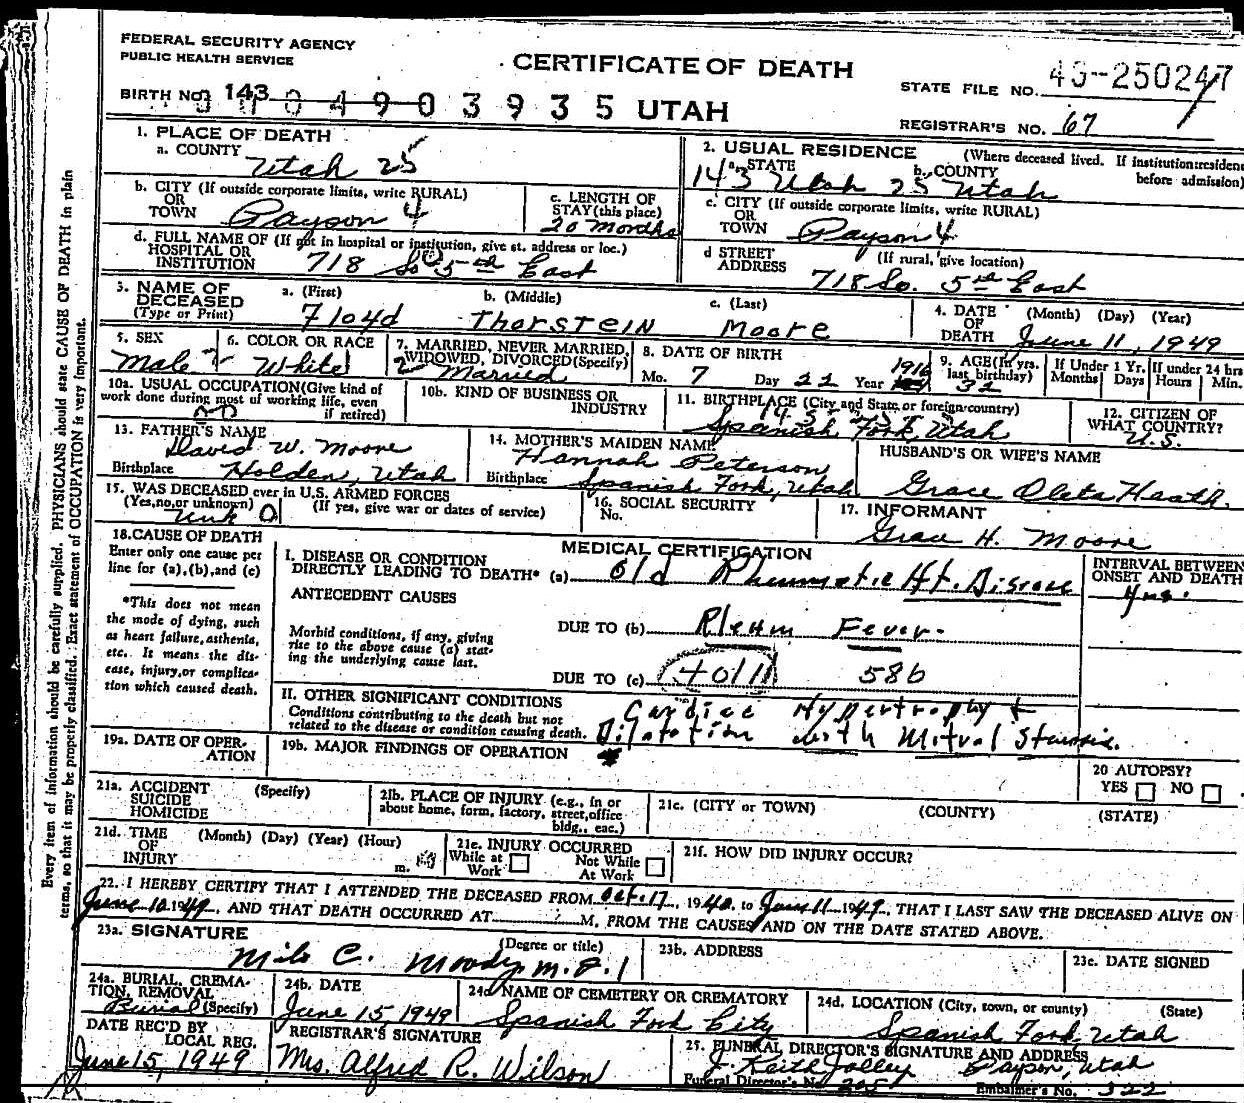 FEDERAL SECURITY AGENCY
PUBLIC HEALTH SERVICE
CERTIFICATE OF DEATH
STATE FILE NO. 49-250247
BIRTH NO. 143
4903935 UTAH
REGISTRAR'S NO. 67
1. PLACE OF DEATH
a. COUNTY
Utah 25
2. USUAL RESIDENCE (Where deceased lived. If institution: residence before admission)
a. STATE b. COUNTY
143 Utah 25 Utah
b. CITY (If outside corporate limits, write RURAL)
OR
TOWN Payson 4
c. LENGTH OF
STAY (this place)
20 Months
c. CITY (If outside corporate limits, write RURAL)
OR
TOWN Payson 4
d. FULL NAME OF (If not in hospital or institution, give st. address or loc.)
HOSPITAL OR
INSTITUTION 718 So 5th East
d STREET (If rural, give location)
ADDRESS 718 So. 5th East
3. NAME OF
DECEASED
(Type or Print)
a. (First) b. (Middle) c. (Last)
Floyd Thorstein Moore
4. DATE (Month) (Day) (Year)
OF
DEATH June 11, 1949
5. SEX
Male
6. COLOR OR RACE
White
7. MARRIED, NEVER MARRIED,
WIDOWED, DIVORCED (Specify)
2 Married
8. DATE OF BIRTH
Mo. 7 Day 22 Year 1916
9. AGE (In yrs.
last birthday)
32
If Under 1 Yr.
Months Days
If under 24 hrs
Hours Min.
10a. USUAL OCCUPATION (Give kind of
work done during most of working life, even
if retired)
10b. KIND OF BUSINESS OR
INDUSTRY
11. BIRTHPLACE (City and State or foreign country)
Spanish Fork, Utah
12. CITIZEN OF
WHAT COUNTRY?
U.S.
13. FATHER'S NAME
David W. Moore
Birthplace Holden, Utah
14. MOTHER'S MAIDEN NAME
Hannah Peterson
Birthplace Spanish Fork, Utah
HUSBAND'S OR WIFE'S NAME
Grace Oleta Heath
15. WAS DECEASED ever in U.S. ARMED FORCES
(Yes, no, or unknown) (If yes, give war or dates of service)
Unk 0
16. SOCIAL SECURITY
No.
17. INFORMANT
Grace H. Moore
18. CAUSE OF DEATH
Enter only one cause per
line for (a), (b), and (c)
*This does not mean
the mode of dying, such
as heart failure, asthenia,
etc. It means the dis-
ease, injury, or complica-
tion which caused death.
MEDICAL CERTIFICATION
I. DISEASE OR CONDITION
DIRECTLY LEADING TO DEATH* (a) Old Rheumatic Ht. Disease
INTERVAL BETWEEN
ONSET AND DEATH
Yrs.
ANTECEDENT CAUSES
Morbid conditions, if any, giving
rise to the above cause (a) stat-
ing the underlying cause last.
DUE TO (b) Rheum Fever.
DUE TO (c) 586
II. OTHER SIGNIFICANT CONDITIONS
Conditions contributing to the death but not
related to the disease or condition causing death.
Cardiac Hypertrophy +
Dilatation with Mitral Stenosis.
19a. DATE OF OPER-
ATION
19b. MAJOR FINDINGS OF OPERATION
20 AUTOPSY?
YES NO
21a. ACCIDENT (Specify)
SUICIDE
HOMICIDE
21b. PLACE OF INJURY (e.g., in or
about home, form, factory, street, office
bldg., eac.)
21c. (CITY or TOWN) (COUNTY) (STATE)
21d. TIME (Month) (Day) (Year) (Hour)
OF
INJURY m.
21e. INJURY OCCURRED
While at Work Not While At Work
21f. HOW DID INJURY OCCUR?
22. I HEREBY CERTIFY THAT I ATTENDED THE DECEASED FROM Oct. 17, 1940, to June 11 1949, THAT I LAST SAW THE DECEASED ALIVE ON
June 10 1949, AND THAT DEATH OCCURRED AT M, FROM THE CAUSES AND ON THE DATE STATED ABOVE.
23a. SIGNATURE (Degree or title)
Milo C. Moody M.D.
23b. ADDRESS
23c. DATE SIGNED
24a. BURIAL, CREMA-
TION, REMOVAL
Burial (Specify)
24b. DATE
June 15 1949
24c NAME OF CEMETERY OR CREMATORY
Spanish Fork City
24d. LOCATION (City, town, or county) (State)
Spanish Fork, Utah
DATE REC'D BY
LOCAL REG.
June 15, 1949
REGISTRAR'S SIGNATURE
Mrs. Alfred R. Wilson
25. FUNERAL DIRECTOR'S SIGNATURE AND ADDRESS
J. Keith Jolley Payson, Utah
Funeral Director's No. Embalmer's No. 322
Every item of information should be carefully supplied. PHYSICIANS should state CAUSE OF DEATH in plain
terms, so that it may be properly classified. Exact statement of OCCUPATION is very important.